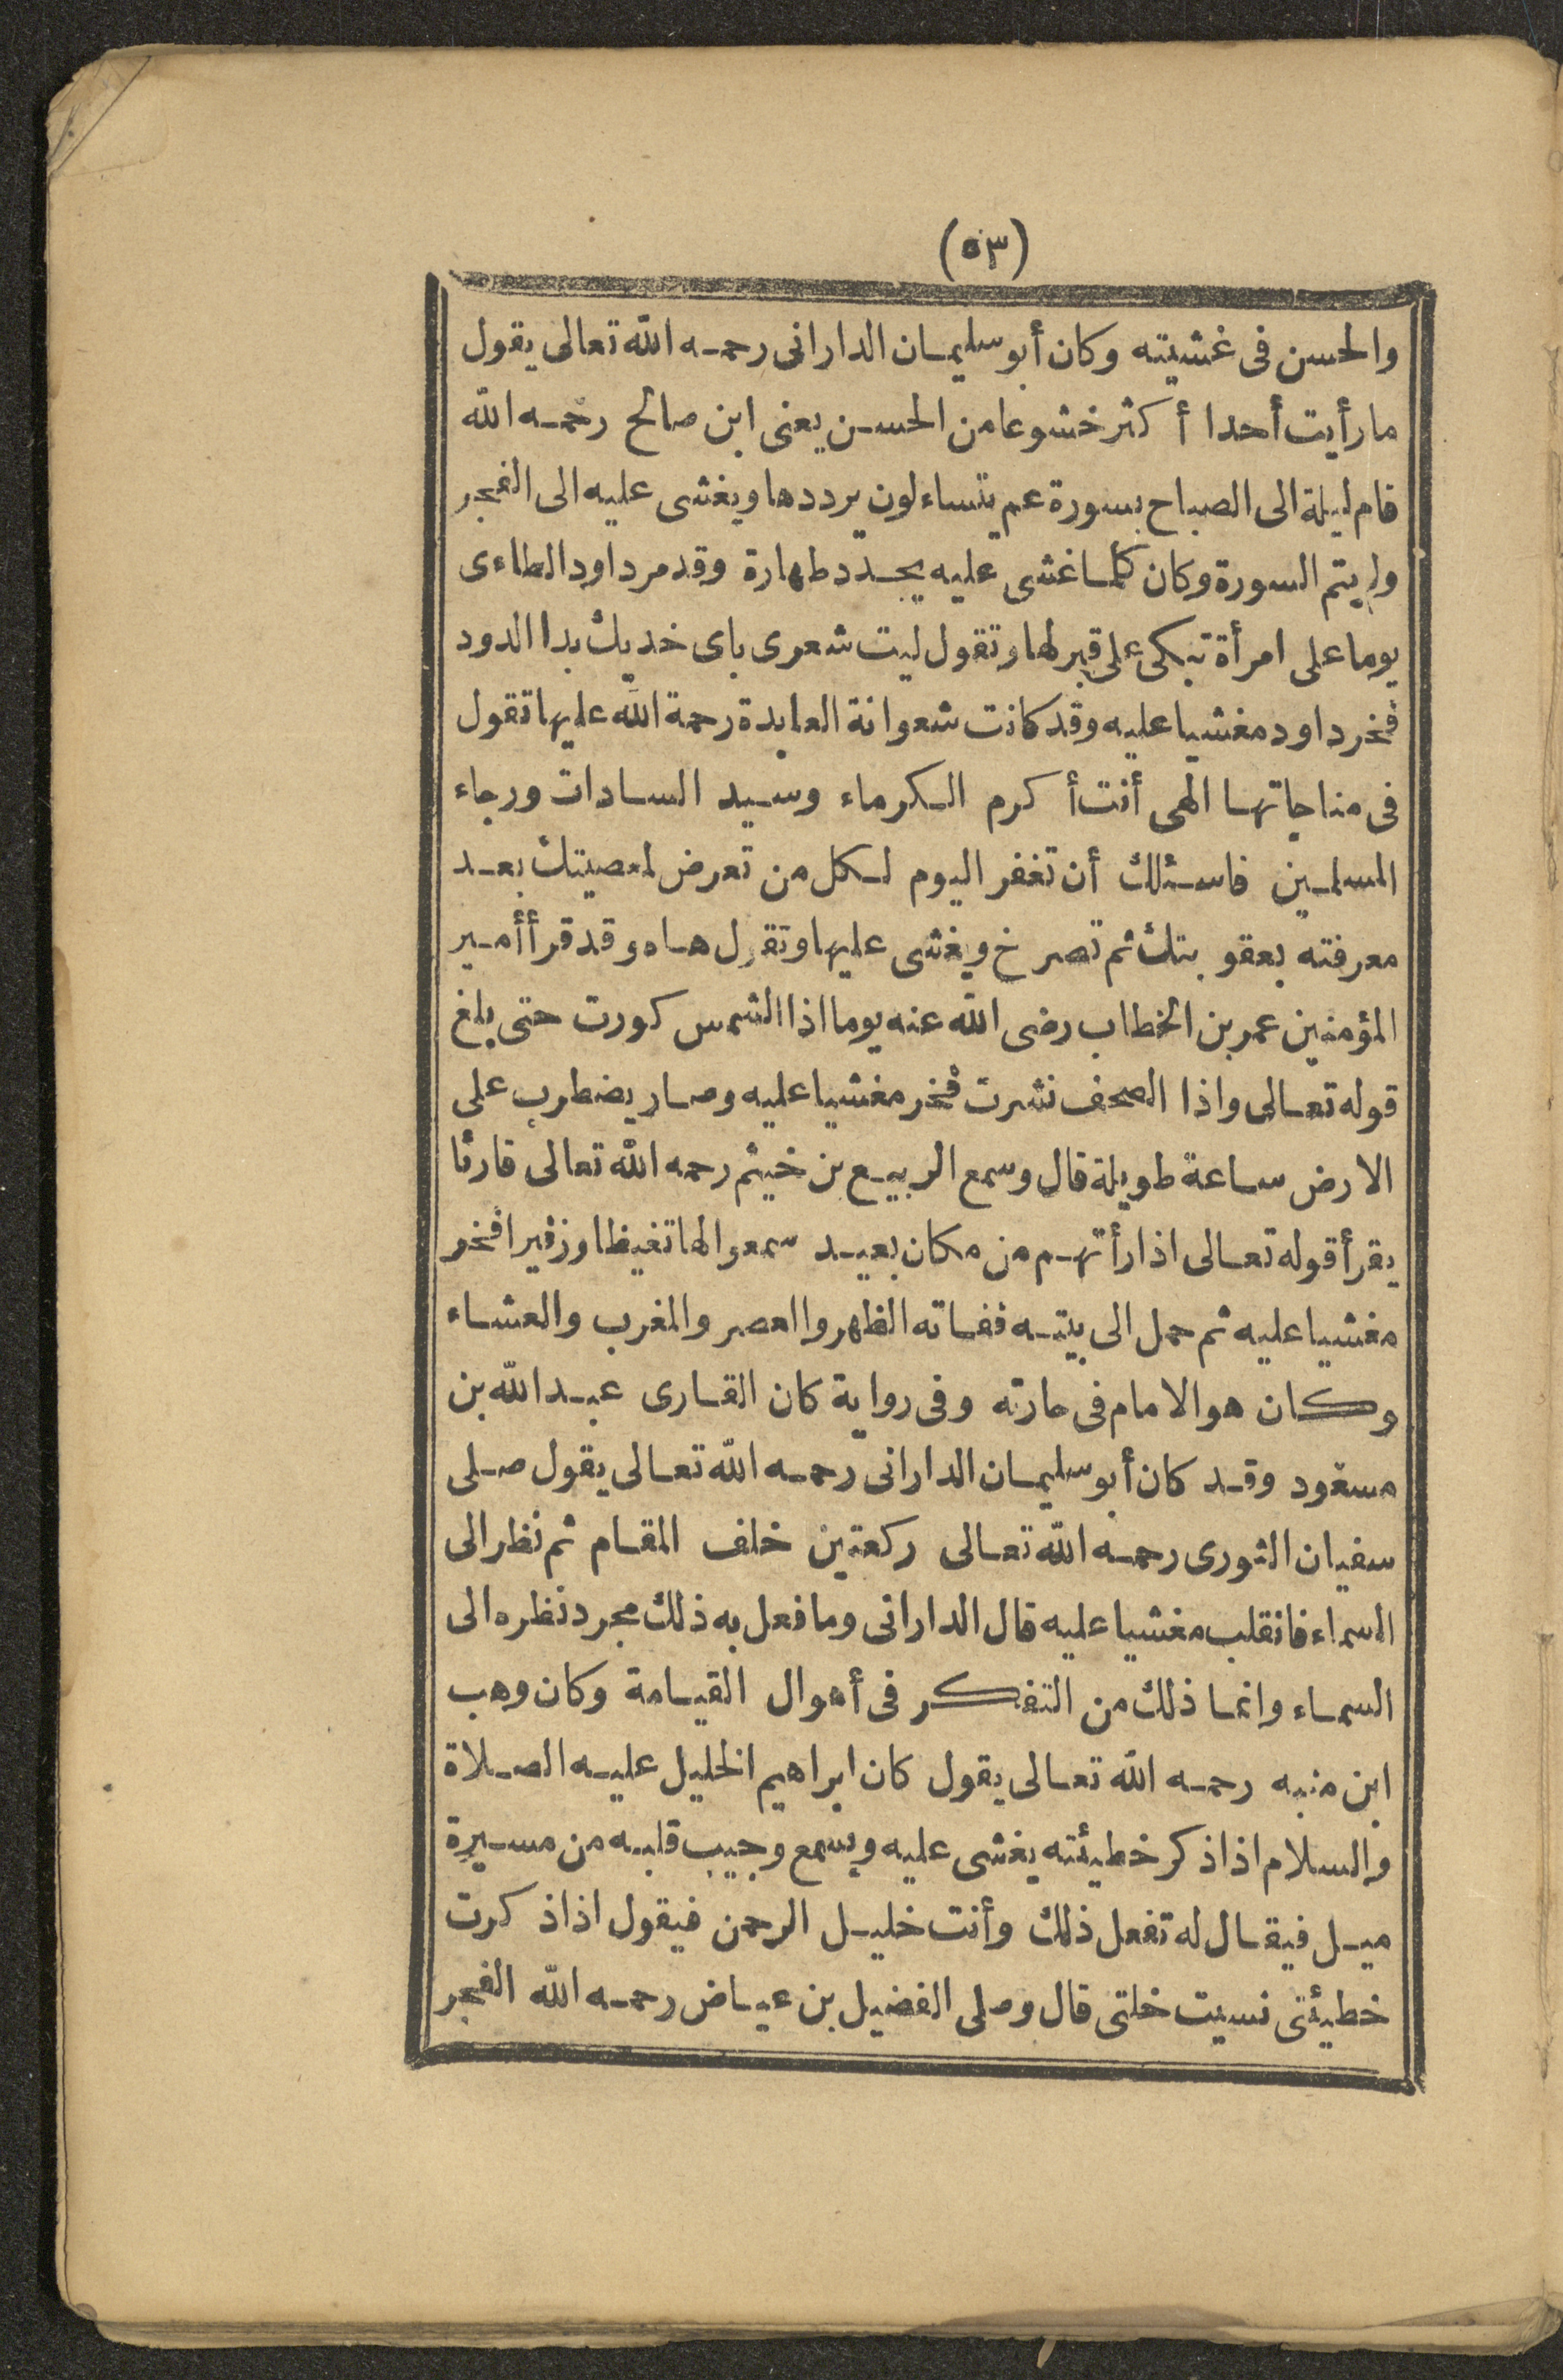 (٥٣)
والحسن فى غشيته وكان أبو سليمان الدارانى رحمه الله تعالى يقول
ما رأيت أحدا أكثر خشوعا من الحسن يعنى ابن صالح رحمه الله
قام ليلة الى الصباح بسورة عم يتساءلون يرددها ويغشى عليه الى الفجر
ولم يتم السورة وكان كلما غشى عليه يجدد طهارة وقد مر داود الطاءى
يوما على امرأة تبكى على قبر لها وتقول ليت شعرى باى خديك بدا الدود
فخر داود مغشيا عليه وقد كانت شعوانة العابدة رحمة الله عليها تقول
فى مناجاتها الهى أنت أكرم الكرماء وسيد السادات ورجاء
المسلمين فاسئلك أن تغفر اليوم لكل من تعرض لمعصيتك بعد
معرفته بعقوبتك ثم تصرخ ويغشى عليها وتقول هاه وقد قرأ أمير
المؤمنين عمر بن الخطاب رضى الله عنه يوما اذا الشمس كورت حتى بلغ
قوله تعالى واذا الصحف نشرت فخر مغشيا عليه وصار يضطرب على
الارض ساعة طويلة قال وسمع الربيع بن خيثم رحمه الله تعالى قارئا
يقرأ قوله تعالى اذا رأتهم من مكان بعيد سمعوا لها تغيظا وزفيرا فخر
مغشيا عليه ثم حمل الى بيته ففاته الظهر والعصر والمغرب والعشاء
وكان هو الامام فى حارته وفى رواية كان القارى عبد الله بن
مسعود وقد كان أبو سليمان الدارانى رحمه الله تعالى يقول صلى
سفيان الثورى رحمه الله تعالى ركعتين خلف المقام ثم نظر الى
السماء فانقلب مغشيا عليه قال الدارانى وما فعل به ذلك مجرد نظره الى
السماء وانما ذلك من التفكر فى أهوال القيامة وكان وهب
ابن منبه رحمه الله تعالى يقول كان ابراهيم الخليل عليه الصلاة
والسلام اذا ذكر خطيئته يغشى عليه ويسمع وجيب قلبه من مسيرة
ميل فيقال له تفعل ذلك وأنت خليل الرحمن فيقول اذا ذكرت
خطيئتى نسيت خلتى قال وصلى الفضيل بن عياض رحمه الله الفجر